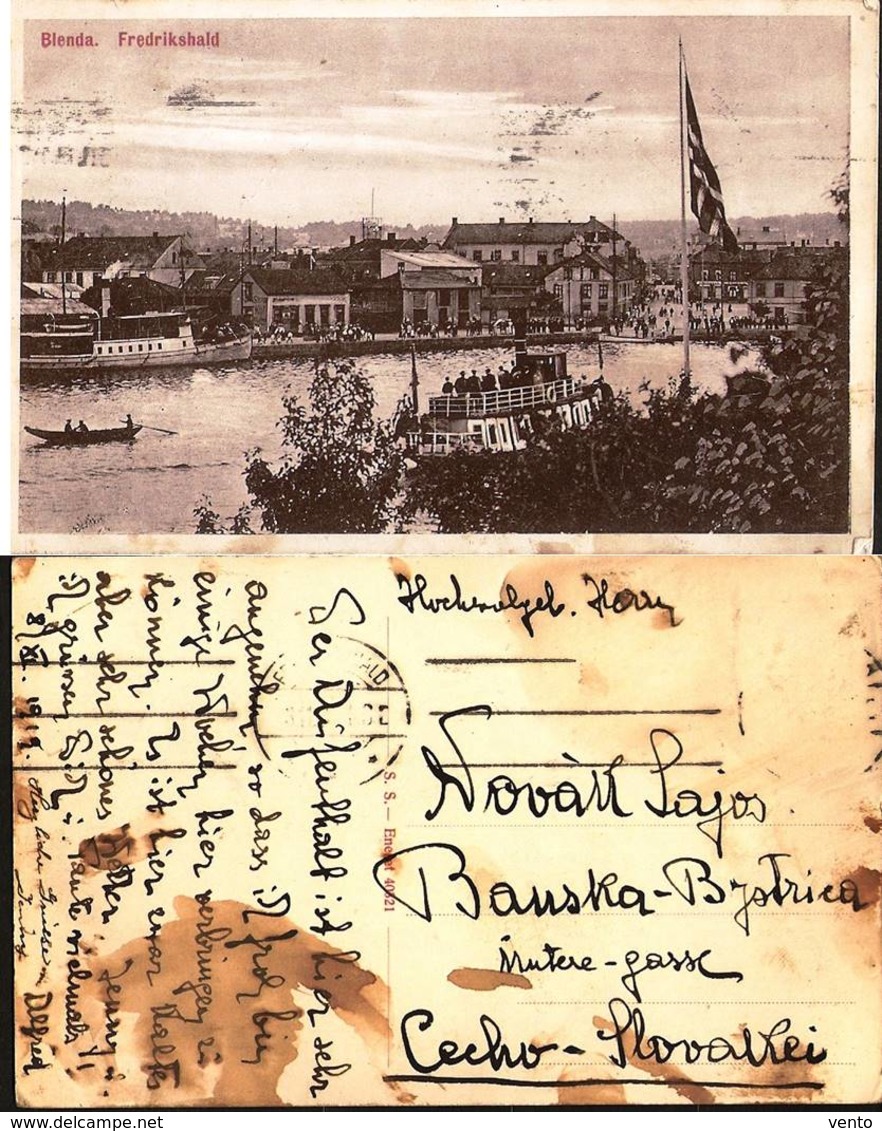 Blenda. Fredrikshald
Hochwolgeb. Herrn
Novák Lajos
Banska-Bystrica
untere-gasse
Cecho-Slovakei
S. S. — Eneret 40921
Der Aufenthalt ist hier sehr
angenehm so dass ich froh bin
einige Wochen hier verbringen zu
können. Es ist hier zwar kaltes
aber sehr schönes Wetter. Jenny u.
ich grüssen Dich u. Tante vielmals!
8/XI. 1919. Herzliche Grüsse Alfred
Jenny
vento